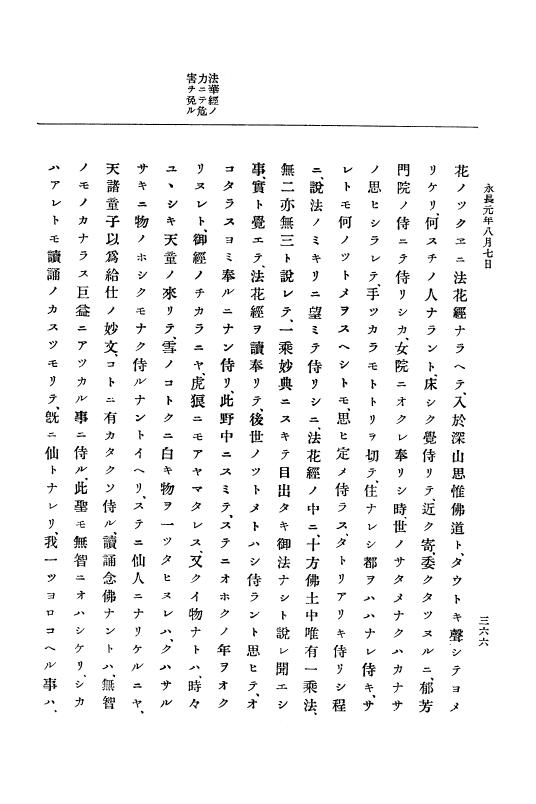 法華經ノ
力ニテ危
害ヲ免ル
永長元年八月七日
三六六
花ノツクヱニ法花經ナラヘテ、入於深山思惟佛道ト、タウトキ聲シテヨメ
リケリ、何スチノ人ナラント、床シク覺侍リテ、近ク寄、委クタツヌルニ、郁芳
門院ノ侍ニテ侍リシカ、女院ニオクレ奉リシ時、世ノサタメナクハカナサ
ノ思ヒシラレテ、手ツカラモトトリヲ切テ、住ナレシ都ヲハハナレ侍キ、サ
レトモ何ノツトメヲスヘシトモ、思ヒ定メ侍ラス、タトリアリキ侍リシ程
ニ、說法ノミキリニ望ミテ侍リシニ、法花經ノ中ニ、十方佛土中唯有一乘法、
無二亦無三ト說レテ、一乘妙典ニスキテ目出タキ御法ナシト說レ聞エシ
事、實ト覺エテ、法花經ヲ讀奉リテ、後世ノツトメトハシ侍ラント思ヒテ、オ
コタラスヨミ奉ルニナン侍リ、此野中ニスミテ、ステニオホクノ年ヲオク
リヌレト、御經ノチカラニヤ、虎狼ニモアヤマタレス、又クイ物ナトハ、時々
ユヽシキ天童ノ來リテ、雪ノコトクニ白キ物ヲ一ツタヒヌレハ、クハサル
サキニ物ノホシクモナク侍ルナントイヘリ、ステニ仙人ニナリケルニヤ、
天諸童子以爲給仕ノ妙文、コトニ有カタクソ侍ル、讀誦念佛ナントハ、無智
ノモノカナラス巨益ニアツカル事ニ侍ル、此聖モ無智ニオハシケリ、シカ
ハアレトモ讀誦ノカスツモリテ、旣ニ仙トナレリ、我一ツヨロコヘル事ハ、